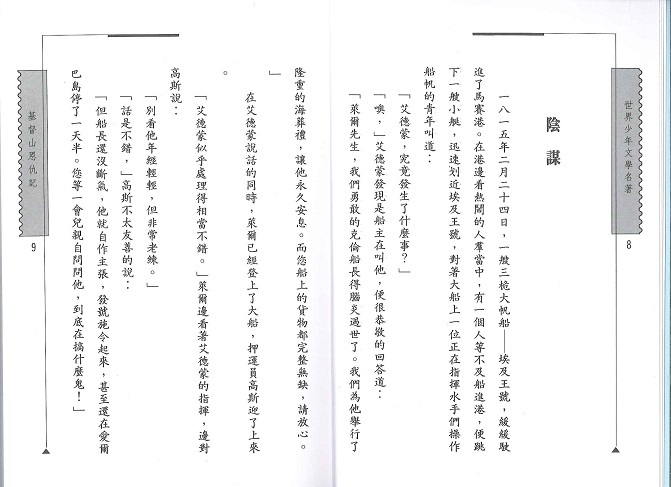 世界少年文學名著
8
陰謀
一八一五年二月二十四日，一艘三桅大帆船——埃及王號，緩緩駛
進了馬賽港。在港邊看熱鬧的人羣當中，有一個人等不及船進港，便跳
下一艘小艇，迅速划近埃及王號，對著大船上一位正在指揮水手們操作
船帆的青年叫道：
「艾德蒙，究竟發生了什麼事？」
「噢，」艾德蒙發現是船主在叫他，便很恭敬的回答道：
「萊爾先生，我們勇敢的克倫船長得腦炎過世了。我們為他舉行了
隆重的海葬禮，讓他永久安息。而您船上的貨物都完整無缺，請放心。
」
在艾德蒙說話的同時，萊爾已經登上了大船，押運員高斯迎了上來
。
「艾德蒙似乎處理得相當不錯。」萊爾邊看著艾德蒙的指揮，邊對
高斯說：
「別看他年經輕輕，但非常老練。」
「話是不錯，」高斯不太友善的說：
「但船長還沒斷氣，他就自作主張，發號施令起來，甚至還在愛爾
巴島停了一天半。您等一會兒親自問問他，到底在搞什麼鬼！」
基督山恩仇記
9